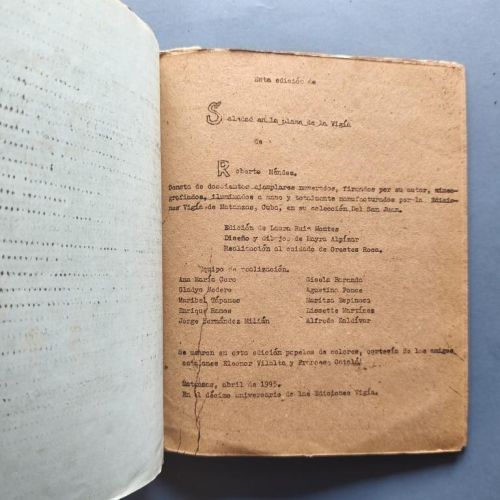 Esta edición de
Soledad en la plaza de la Vigía
de
Roberto Méndez.
Consta de doscientos ejemplares numerados, firmados por su autor, mimeo-
grafiados, iluminados a mano y totalmente manufacturados por la Edicio-
nes Vigía de Matanzas, Cuba, en su selección Del San Juan.
Edición de Laura Ruiz Montes
Diseño y dibujos de Mayra Alpízar
Realización al cuidado de Orestes Roca.
Equipo de realización.
Ana María Caro Gisela Baranda
Gladys Mederos Agustina Ponce
Maribel Tápanes Maritza Espinosa
Enrique Ramos Lissette Martínez
Jorge Hernández Milián Alfredo Zaldívar
Se usaron en esta edición papeles de colores, cortesía de los amigos
catalanes Eleonor Vilalta y Francesc Català.
Matanzas, abril de 1995.
En el décimo aniversario de las Ediciones Vigía.